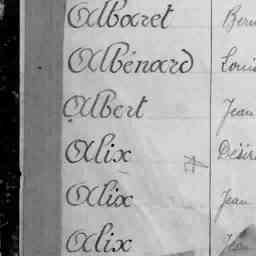 Albaret Bern
Albénard Louis
Albert Jean
Alix Désiré
Alix Jean
Alix Jean